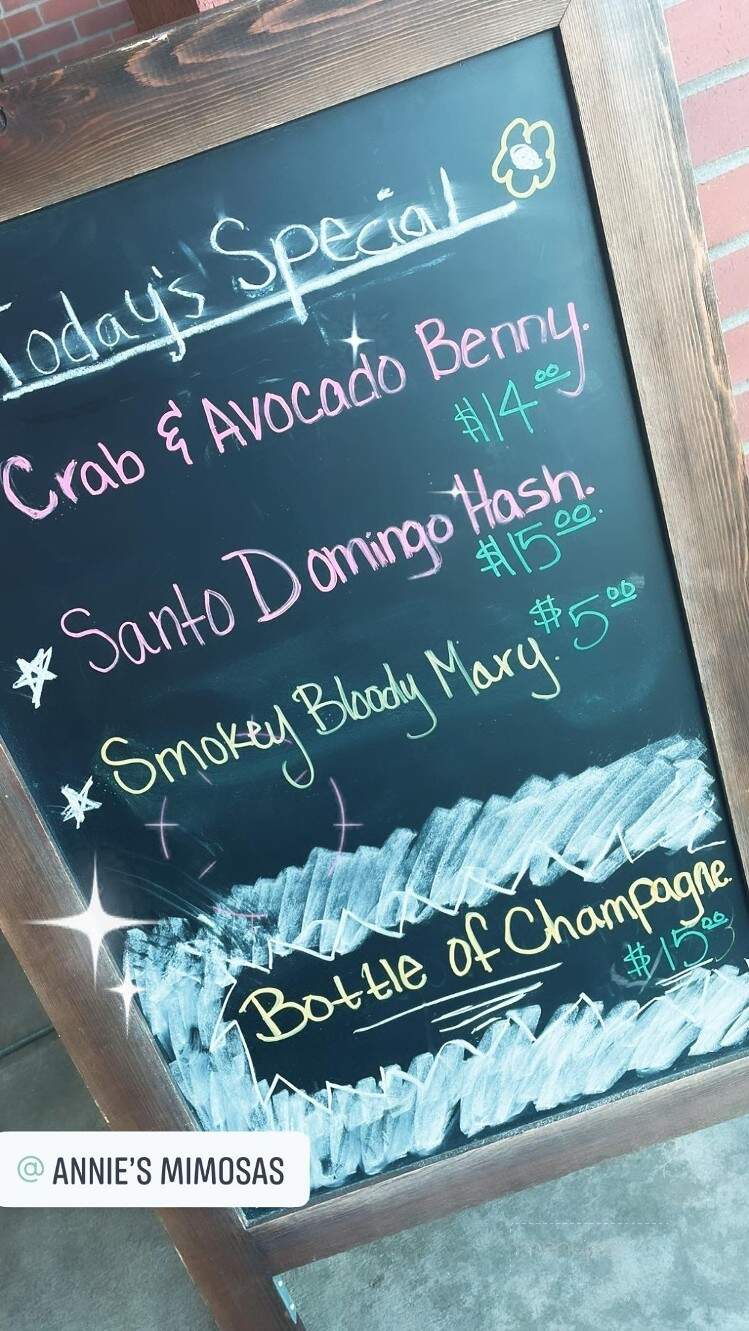 Today's Special
Crab & Avocado Benny.
$14.00
Santo Domingo Hash.
$15.00
Smokey Bloody Mary. $5.00
Bottle of Champagne.
$15.00
@ ANNIE'S MIMOSAS